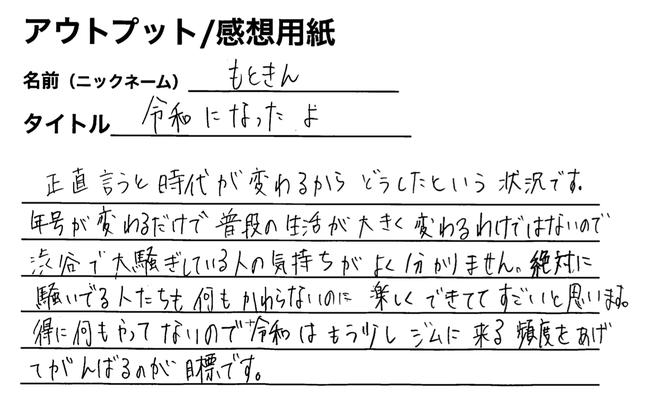 アウトプット/感想用紙
名前（ニックネーム） もときん
タイトル 令和になったよ
正直言うと時代が変わるからどうしたという状況です。
年号が変わるだけで普段の生活が大きく変わるわけではないので
渋谷で大騒ぎしている人の気持ちがよく分かりません。絶対に
騒いでる人たちも何もかわらないのに楽しくできててすごいと思います。
得に何もやってないので令和はもう少しジムに来る頻度をあげ
てがんばるのが目標です。